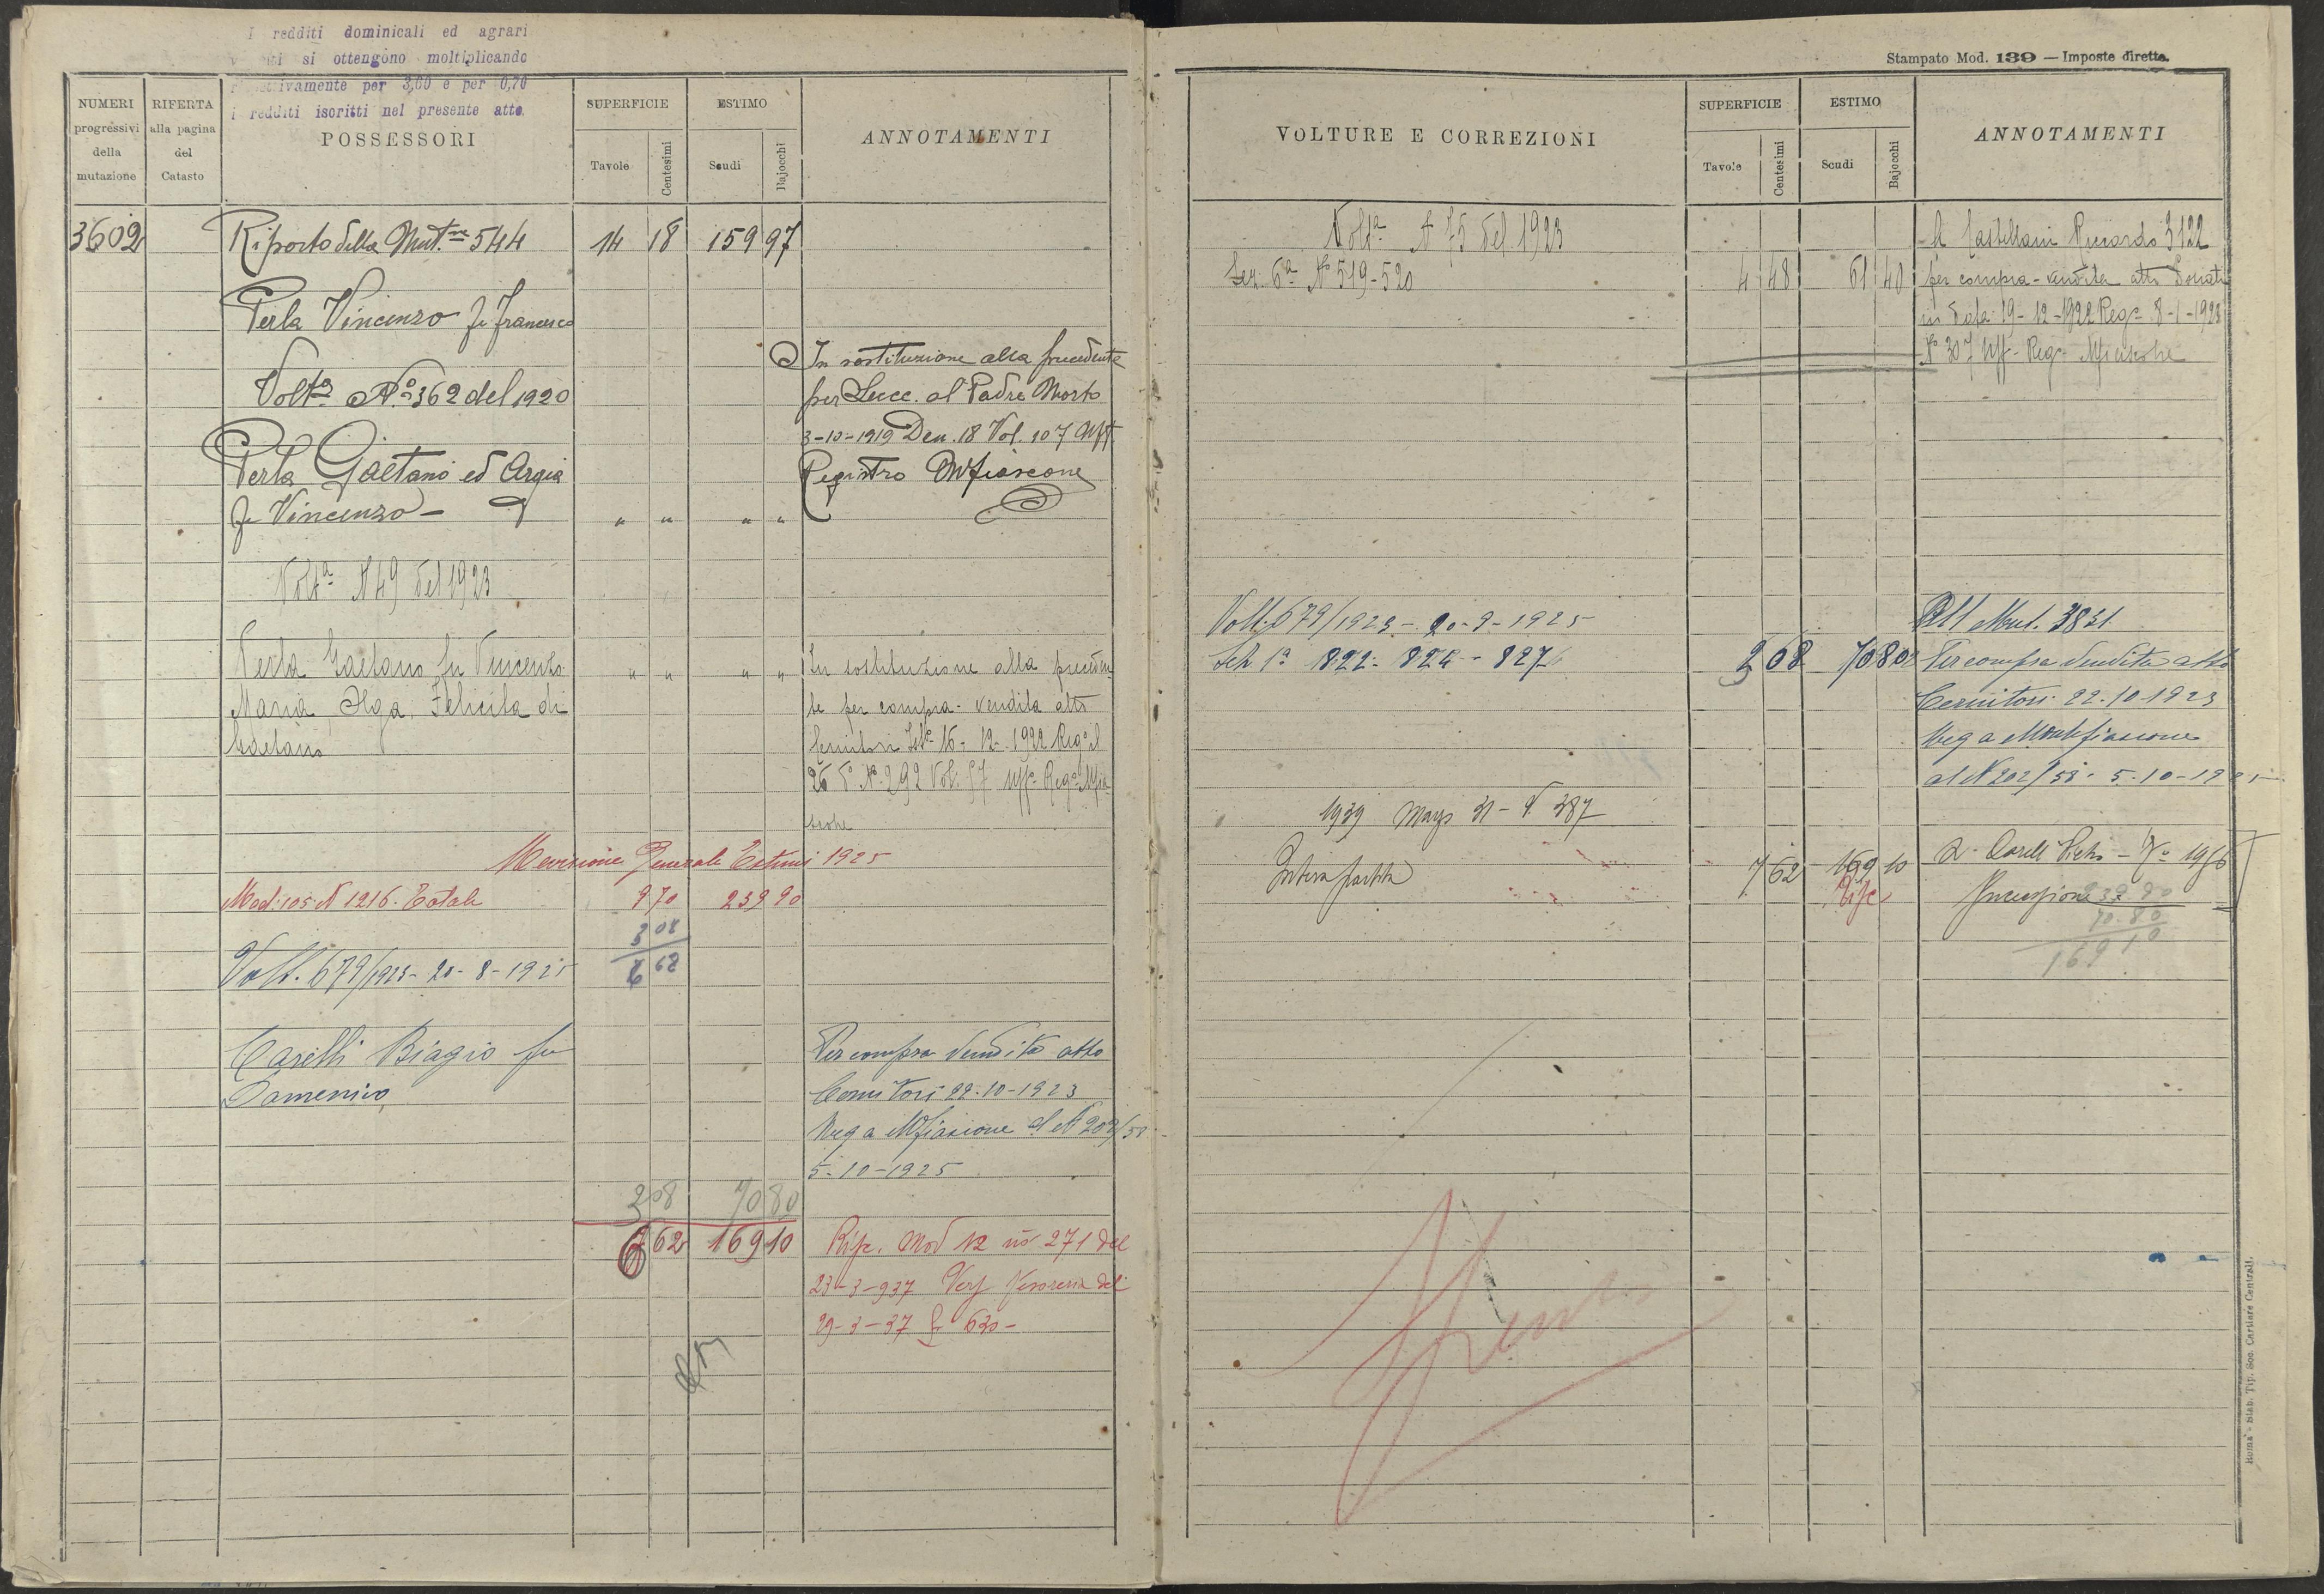 I redditi dominicali ed agrari
si ottengono moltiplicando
per 3,60 e per 0,70
i redditi iscritti nel presente atto.
NUMERI
progressivi
della
mutazione
RIFERTA
alla pagina
del
Catasto
POSSESSORI
SUPERFICIE
Tavole
Centesimi
ESTIMO
Scudi
Bajocchi
ANNOTAMENTI
3602 Riporto della Mut.ne 544 14 18 159 97
Perla Vincenzo fu Francesco
Volt.a N.o 362 del 1920
In sostituzione alla precedente
per Succ. al Padre Morto
3-10-1919 Den. 18 Vol. 107 Uff.
Registro Mfiascone
Perla Gaetano ed Argia
fu Vincenzo - " " " "
Volt.a N 49 del 1923
Perla Gaetano fu Vincenzo " " " " In sostituzione alla preceden
Maria, Olga, Felicita di te per compra-vendita atto
Gaetano 16-12-1922 Reg.o il
26 d.o N.o 292 Vol. 57 Uff. Reg.o Mfia
scone
Revisione Generale Estimi 1925
Mod. 105 N 1216. Totale 9 70 239 90
3 08
6 62
Volt. 679/1923 - 20-8-1925
Carelli Biagio fu
Domenico
Per compra vendita atto
Cernitori 22-10-1923
Reg a Mfiascone al N 202/58
5-10-1925
3 08 70 80
6 62 169 10
Rip. Mod 12 no 271 del
23-3-937 Tesoreria del
29-3-37 £ 630-
Stampato Mod. 139 — Imposte dirette.
VOLTURE E CORREZIONI
SUPERFICIE
Tavole
Centesimi
ESTIMO
Scudi
Bajocchi
ANNOTAMENTI
Volt.a N 75 del 1923
Sez. 6a No 519-520 4 48 61 40
A Castellani Riccardo 3122
per compra-vendita atto Donati
in data 19-12-1922 Reg.o 8-1-1923
No 307 Uff. Reg.o Mfiascone
Volt. 679/1923 - 20-9-1925
Sez 1a 1822 - 824 - 827 3 08 70 80
All Mut. 3831
Per compra vendita atto
Cernitori 22-10-1923
Reg a Montefiascone
al N 202/58 - 5-10-1925
1939 Mags 31 - N 387
Intera partita 7 62 169 10
Rife
239 90
70.80
169 10
Roma - Stab. Tip. Soc. Cartiere Centrali.